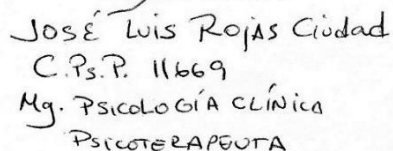 José Luis Rojas Ciudad
C.Ps.P. 11669
Mg. PSICOLOGÍA CLÍNICA
PSICOTERAPEUTA